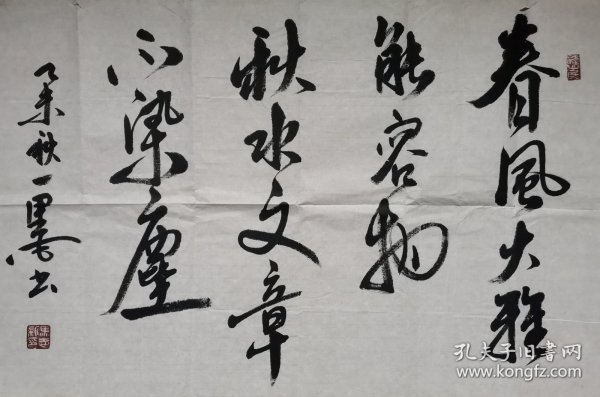 春風大雅
能容物
秋水文章
不染塵
乙未秋一墨书
孔夫子旧書网
www.kongfz.com